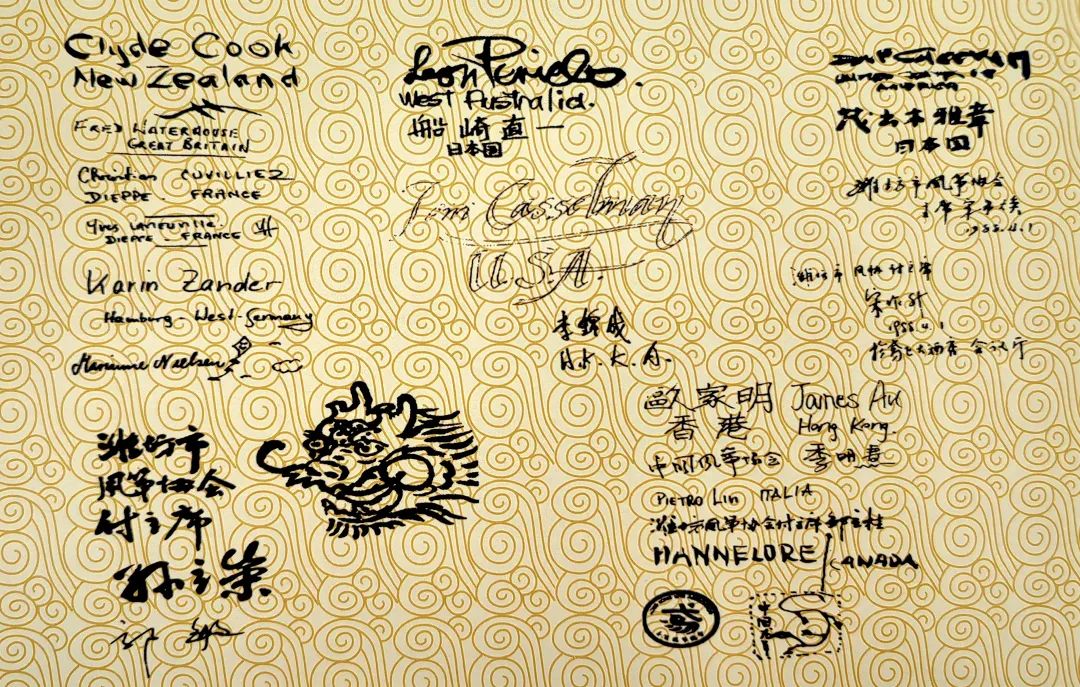 Clyde Cook
New Zealand
FRED WATERHOUSE
GREAT BRITAIN
Christian CUVILLIEZ
DIEPPE. FRANCE
Yves
DIEPPE. FRANCE
Karin Zander
Hamburg - West-Germany
Marianne Nielsen
潍坊市
风筝协会
付主席
孙立荣
West Australia.
船崎直一
日本国
Casselman
U.S.A.
李锦成
H.K.K.A.
AMERICA
茂出木雅章
日本国
潍坊市风筝协会
主席
1988.4.1
潍坊市风协付主席
1988.4.1
歐家明 James Au
香港 Hong Kong
中国风筝协会 李明君
PIETRO Lin ITALIA
潍坊风筝协会付主席
HANNELORE CANADA